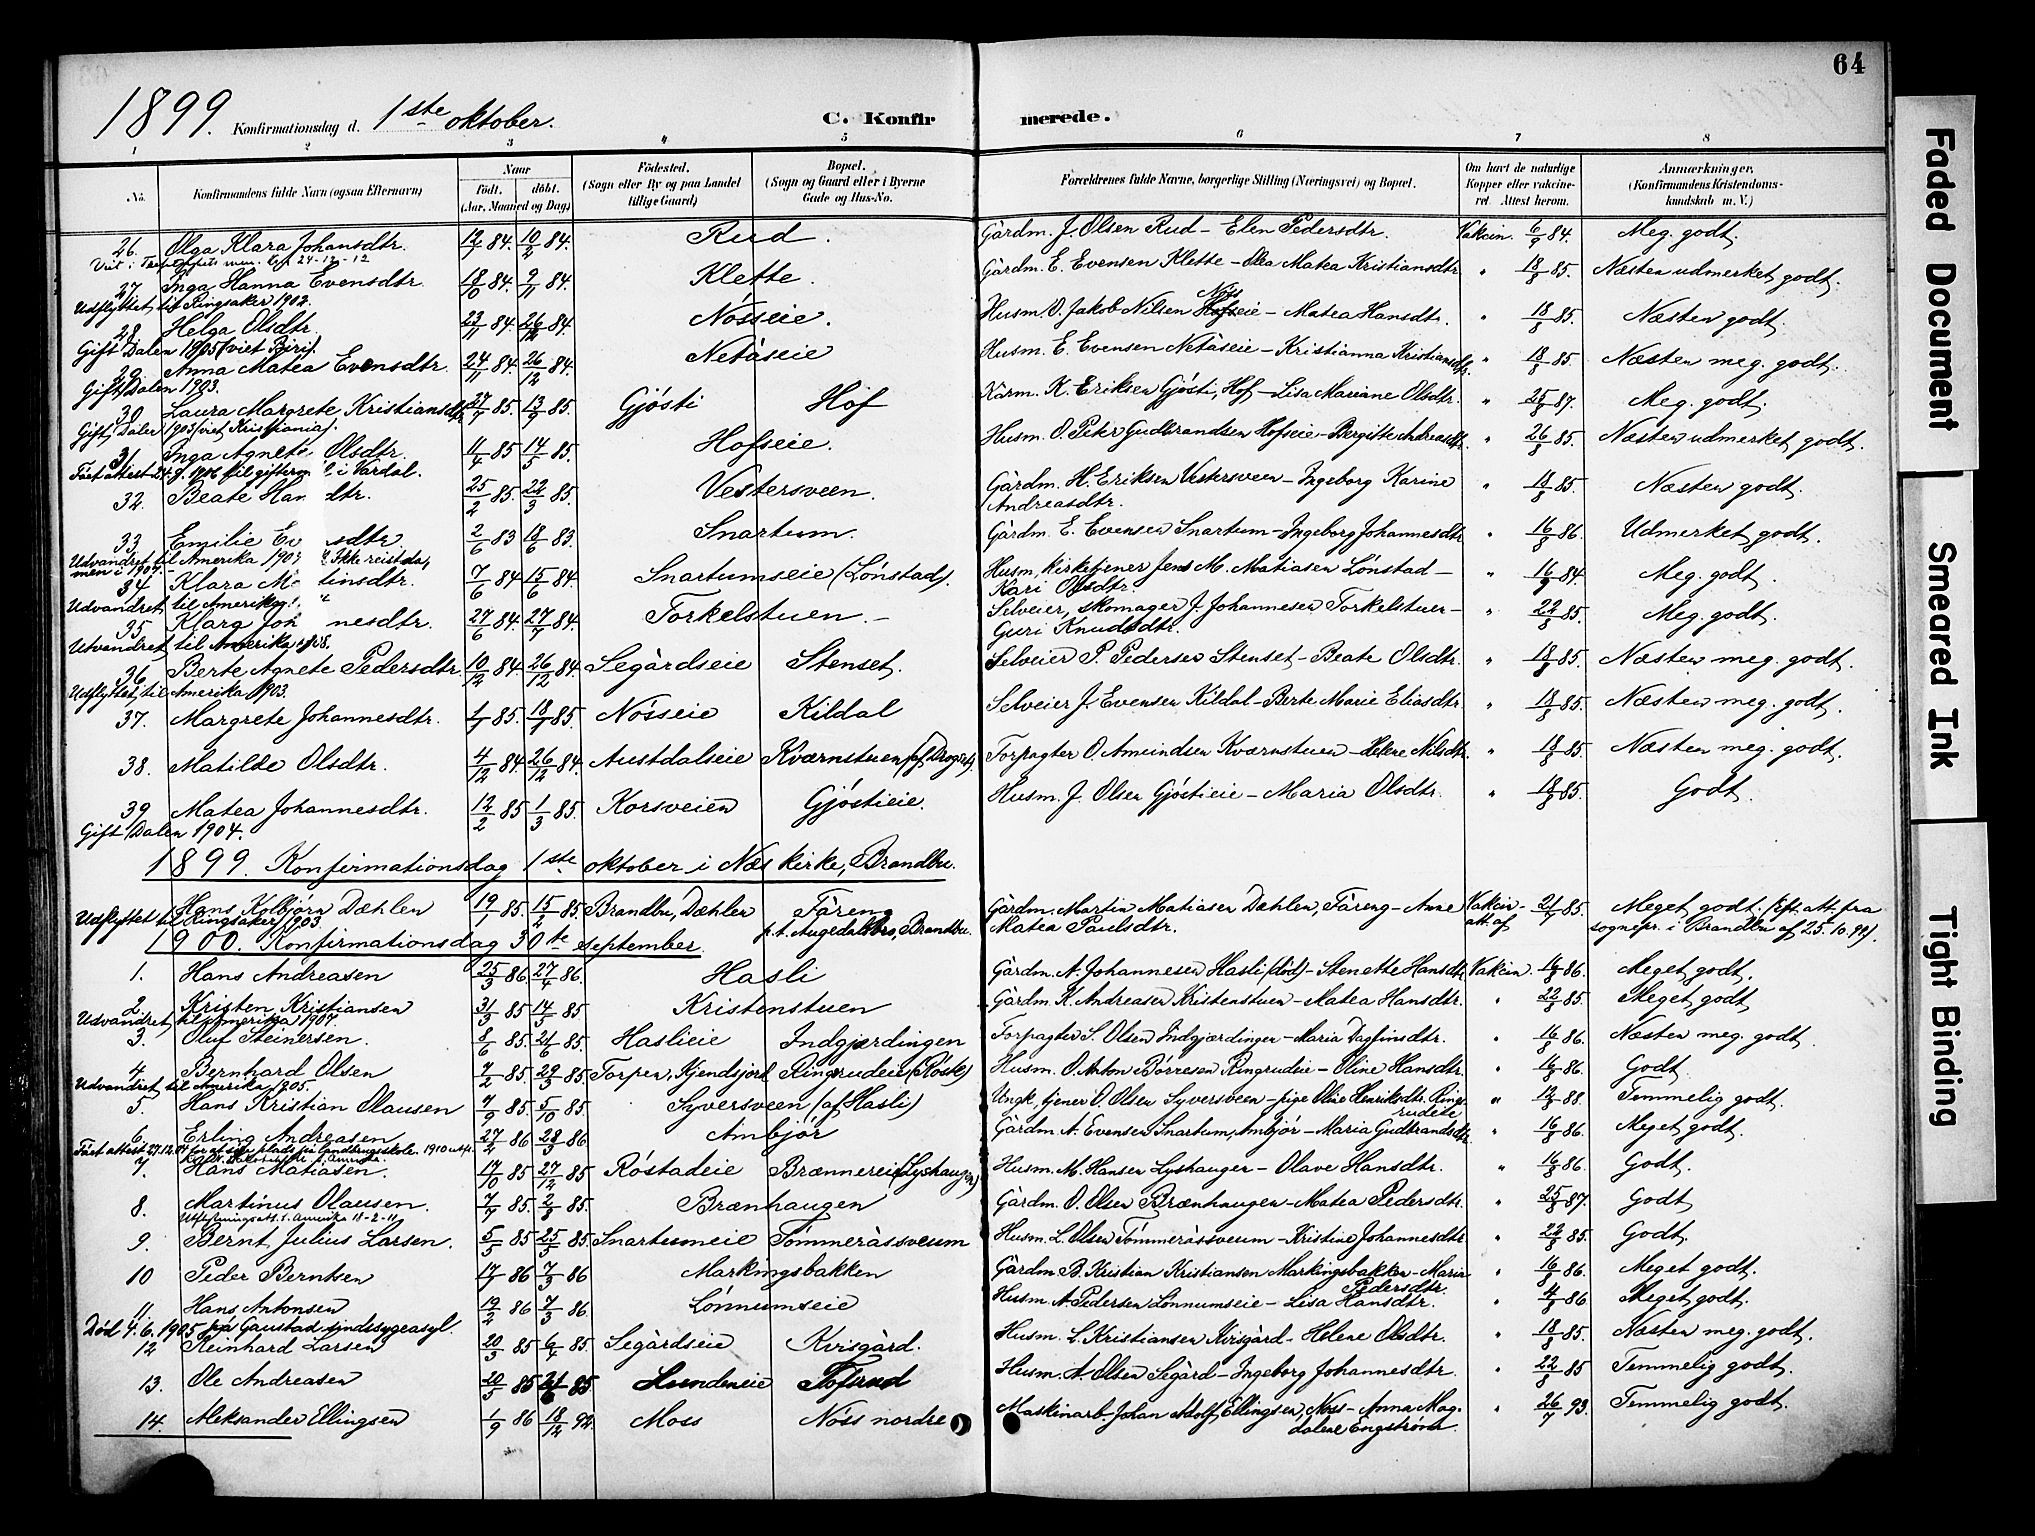 64
1899. Konfirmationsdag d. 1ste oktober. C. Konfirmerede.
1 2 3 4 5 6 7 8
No. Konfirmandens fulde Navn (ogsaa Efternavn) Naar födt. döbt. (Aar, Maaned og Dag) Födested. (Sogn eller By og paa Landet tillige Gaard) Bopæl. (Sogn og Gaard eller i Byerne Gade og Hus-No. Forældrenes fulde Navne, borgerlige Stilling (Næringsvei) og Bopæl. Om havt de naturlige Kopper eller vakcineret. Attest herom. Anmærkninger. (Konfirmandens Kristendomskundskab m. V.)
26. Olga Klara Johansdtr. 84. 10/2 84. Rud. Gårdm. J. Olsen Rud – Elen Pedersdtr. Vakcin. 6/9 84. Meg. godt.
27 Inga Hanna Evensdtr. 18/10 84. 9/11 84. Klette. Gårdm. E. Evensen Klette – Matea Kristiansdtr. " 18/8 85. Næsten udmerket godt.
Udflyttet til Ringsaker 1902.
28. Helga Olsdtr. 23/11 84. 26/12 84. Nósseie. Husm. O. Jakob Nilsen Nósseie – Matea Hansdtr. " 18/8 85. Næsten godt.
Gift Dalen 1905 (viet Biri).
29. Anna Matea Evensdtr. 24/11 84. 26/12 84. Netåseie Husm. E. Evensen Netåseie – Kristianna Kristiansdtr. " 18/8 85. Næsten meg. godt.
Gift Dalen 1903.
30 Laura Margrete Kristiansdtr 27/7 85. 13/9 85. Gjósti Hof K. Eriksen Gjósti, Hof – Lisa Mariane Olsdtr. " 25/8 87. Meg. godt.
Gift, Dalen 1903 (viet Kristiania).
31 Inga Agnete Olsdtr. 11/4 85 17/5 85. Hofseie. Husm. O. Peter Gudbrandsen Hofseie – Bergitte Andreasdtr. " 26/8 85. Næsten udmerket godt.
32. Beate Han dtr. 25/2 85. 22/3 85. Vestersveen. Gårdm. H. Eriksen Vestersveen – Ingeborg Karine Andreasdtr. " 18/8 85. Næsten godt.
33 Emilie Ev sdtr. 2/6 83 18/6 83. Snartum. Gårdm. E. Evensen Snartum – Ingeborg Johannesdtr " 16/8 86. Udmerket godt.
Udvandret til Amerika 190 Ikke reist da, men i 1907.
34 Klara M tinsdtr. 7/6 84 15/6 84. Snartumseie (Lónstad). Husm, kirketjener Jens M. Matiasen Lónstad – Kari Olsdtr. " 16/9 84. Meg. godt.
Udvandret til Amerika
35 Klara Joh nesdtr. 27/6 84. 27/7 84. Torkelstuen. – Selveier, skomager J. Johannesen Torkelstuen – Guri Knudsdtr. " 22/8 85. Meg. godt.
Utvandret til Amerika
36 Berte Agnete Pedersdtr. 10/12 84. 26/12 84. Segårdseie Stenset. Selveier P. Pedersen Stenset – Beate Olsdtr. " 18/8 85. Næsten meg. godt.
Udflyttet til Amerika 1903.
37. Margrete Johannesdtr. 1/1 85. 18/1 85. Nósseie Kildal Selveier J. Evensen Kildal – Berte Marie Eliasdtr. " 18/8 85. Næsten meg. godt.
38. Matilde Olsdtr. 4/12 84. 26/12 84. Austdalseie Kværnstuen Forpagter O. Amundsen Kværnstuen – Helene Nilsdtr. " 18/8 85. Næsten meg. godt.
39 Matea Johannesdtr. 12/2 85. 1/3 85. Korsveien Gjóstieie. Husm. J. Olsen Gjóstieie – Maria Olsdtr. " 18/8 85. Godt.
Gift Dalen 1904.
1899. Konfirmationsdag 1ste oktober i Næs kirke, Brandbu.
Hans Kolbjórn Dæhlen 19/1 85. 15/2 85. Brandbu, Dæhlen Fåreng p.t. Brandbu. Gårdm. Martin Matiasen Dæhlen, Fåreng – Anne Matea Paulsdtr. Vakcin-att. af 21/7 85. Meget godt. (eft. att. fra sognepr. i Brandbu af 25.10.99).
Udflyttet til Ringsaker 1903.
1900. Konfirmationsdag 30te september.
1. Hans Andreasen 25/3 86 27/4 86. Hasli Gårdm. A. Johannesen Hasli (död) – Stenette Hansdtr. Vakcin. 16/8 86. Meget godt.
2. Kristen Kristiansen 31/3 85 14/5 85. Kristenstuen Gårdm. K. Andreasen Kristenstuen – Matea Hansdtr. " 22/8 85. Meget godt
Udvandret til Amerika 1907.
3. Oluf Steinersen. 8/6 85. 21/6 85. Haslieie Indgjærdingen Forpagter S. Olsen Indgjærdingen – Maria Dagfinsdtr. " 16/8 86. Næsten meg. godt.
4 Bernhard Olsen 7/2 85. 29/3 85. Torpen, Kjendsjort Ringrudeie (Róste) Husm. O. Anton Bórresen Ringrudeie – Oline Hansdtr. " 16/8 86. Godt.
Udvandret til Amerika 1905.
5. Hans Kristian Olausen 7/9 85. 5/10 85. Syversveen (af Hasli) Ungk., tjener O. Olsen Syversveen – pige Oline Henriksdtr. Ringrudeie " 12/8 88. Temmelig godt.
6. Erling Andreasen 27/2 86 28/3 86 Ambjór Gårdm. A. Evensen Snartum, Ambjór – Maria Gudbrandsdtr " 16/8 86. Meget godt.
7. Hans Matiasen. 17/10 85 27/12 85. Róstadeie Brænnereie (Lyshaugen) Husm. M. Hansen Lyshaugen – Olave Hansdtr. " 16/8 86. Godt.
8. Martinus Olausen. 7/7 85. 2/8 85. Brænhaugen Gårdm. O. Olsen Brænhaugen – Matea Pedersdtr. " 25/8 87. Godt
9. Bernt Julius Larsen. 5/5 85 25/5 85. Snartumeie Tómmeråssveum Husm. L. Olsen Tómmeråssveum – Kristine Johannesdtr " 22/8 85. Godt.
10 Peder Berntsen 17/1 86 7/3 86 Markingsbakken Gårdm B. Kristian Kristiansen Markingsbakken – Maria Pedersdtr. " 16/8 86. Meget godt.
11. Hans Antonsen 12/2 86 7/3 86. Lónnumseie Husm. A. Pedersen Lónnumseie – Lisa Hansdtr. " 4/8 86 Meget godt.
Död 4.6.1905 på Gaustad sindssygeasyl.
12 Reinhard Larsen 20/3 85 6/4 85. Segårdseie Kvisgård. Husm. L. Kristiansen Kvisgård – Helene Olsdtr. " 18/8 85. Næsten meg. godt.
13. Ole Andreasen 20/5 85 21/6 85. Lundeneie Tofsrud Husm. A. Olsen Segård – Ingeborg Johannesdtr. " 22/8 85 Temmelig godt.
14. Aleksander Ellingsen 1/9 86 18/12 92. Moss Nóss nordre Maskinarb. Johan Adolf Ellingsen, Noss – Anna Magdalene Engstróm. " 26/7 93. Temmelig godt.
Faded Document
Smeared Ink
Tight Binding